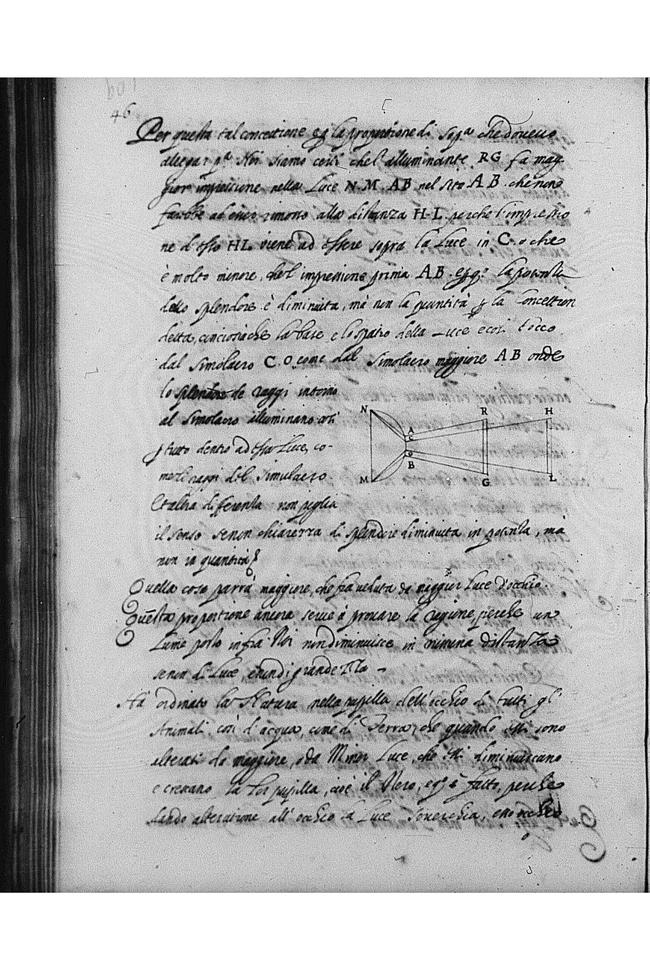 46
Per questa tal concettione et la proportione di sopra che dovevo
allegar per Noi siamo certi che l'alluminante RG fa mag-
gior impressione nella Luce N·M AB nel sito AB che non
farebbe ad esser rimoto alla distanza H·L perche l'impressio
ne d'esso HL viene ad essere sopra la Luce in C·o che
è molto minore, che l'impressione prima AB
dello splendore è diminuita, mà non la quantità la Concettion
detta, conciosiache la base e lo spatio della Luce è così tocco
dal Simolacro C·O come dal Simolacro maggiore AB onde
lo splendore de raggi intorno
al Simolacro illuminano così
tutto dentro ad essa Luce, co-
me li raggi del Simulacro
Et altra differenza non piglia
il senso senon chiarezza di splendore diminuita in potenza, ma
non in quantità
N R H
A
C
O
B
M G L
Quella cosa parrà maggiore, che sia veduta da maggior Luce d'occhio
Questa proportione ancora serve à provare la ragione, perche un
Lume posto infra Noi non diminuisce in niuna distanza
senon di Luce e non di grandezza
Hà ordinato la Natura nella pupilla dell'occhio di tutti gl'
Animali, così d'acqua, come di Terra, che quando essi sono
alterati da maggiore, o da Minor Luce, che essi diminuiscano
e crescano la lor pupilla, cioè il Nero, et è fatto, perche
dando alteratione all'occhio la Luce Soverchia,